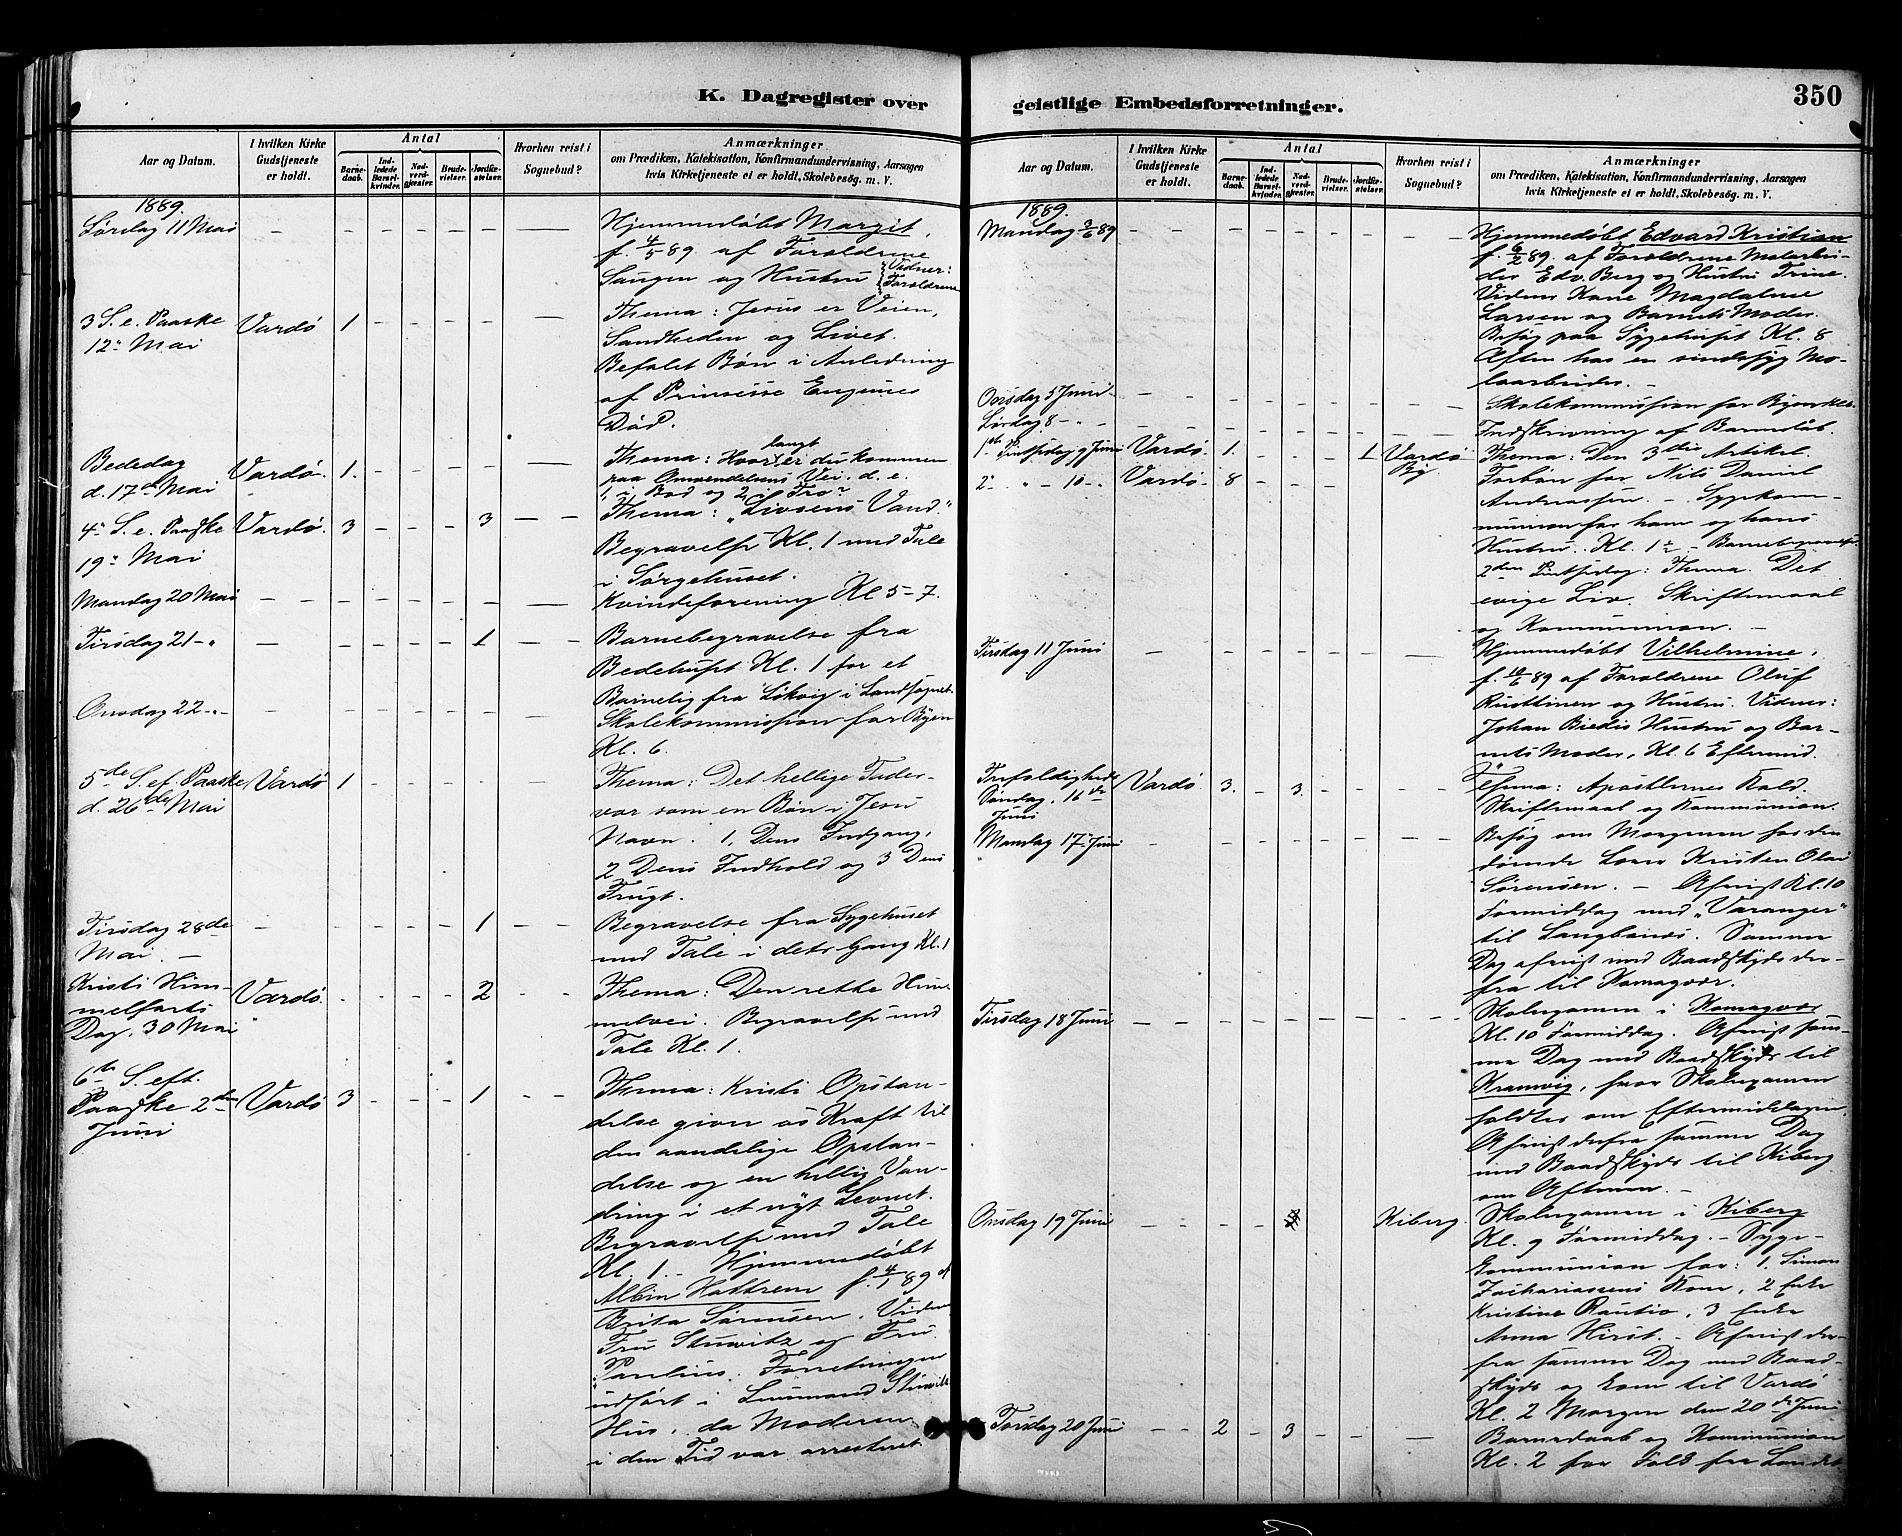 K. Dagregister over
Aar og Datum.
I hvilken Kirke Gudstjeneste er holdt.
Antal
Barnedaab.
Indledede Barselkvinder.
Nadvergjester.
Brudevielser.
Jordfæstelser.
Hvorhen reist i Sognebud?
Anmærkninger
om Prædiken, Katekisation, Konfirmandundervisning, Aarsagen
hvis Kirketjeneste ei er holdt, Skolebesøg. m. V.
1889.
Lørdag 11 Mai – – – – – – –
Hjemmedøbt Margit,
f. 4/5 89 af Forældrene
og Hustru Vidner:
Forældrene
3 S. e. Paaske Vardø 1 – – – – –
12te Mai
Thema: Jesus er Veien,
Sandheden og Livet.
Befalet Bøn i Anledning
af Prinsesse Eugenies
Død.
Bededag Vardø. 1. – – – – –
d. 17de Mai
Thema: Hvor langt er du kommen
paa Omvendelsens Vei, d. e.
1, i Bod og 2, i Tro?
4de S. e. Paaske Vardø. 3 – – – 3 –
19de Mai
Thema: "Livsens Vand."
Begravelse Kl. 1 med Tale
i Sørgehuset.
Mandag 20 Mai – – – – – – –
Kvindeforening Kl 5–7.
Tirsdag 21 – " – – – – – 1 –
Barnebegravelse fra
Bedehuset Kl. 1 for et
Barnelig fra i Landsognet.
Onsdag 22 – " – – – – – – – –
Skolekommission for Byen
Kl. 6.
5de S. ef. Paaske Vardø 1 – – – – –
d. 26de Mai
Thema: Det hellige Fader-
vor som en Bøn i Jesu
Navn. 1, Dens Indgang,
2 Dens Indhold og 3 Dens
Frugt.
Tirsdag 28de – – – – – 1 –
Mai. –
Begravelse fra Sygehuset
med Tale i dets Gang Kl. 1
Kristi Him-
melfarts Vardø. – – – – 2 –
Dag, 30 Mai
Thema: Den rette Him-
melvei. Begravelse med
Tale Kl. 1.
6te S. eft.
Paaske 2den Vardø 3 – – – 1 –
Juni
Thema: Kristi Opstan-
delse giver os Kraft til
den aandelige Opstan-
delse og en hellig Van-
dring i et nyt Levnet.
Begravelse med Tale
Kl. 1. – Hjemmedøbt
Albin f. 4/1 89 af
Brita Sørensen. Vidner
Fru Stuwitz og Fru
Forretningen
udført i Lensmand
Hus, da Moderen
i den Tid var arresteret.
geistlige Embedsforretninger.
350
Aar og Datum.
I hvilken Kirke Gudstjeneste er holdt.
Antal
Barnedaab.
Indledede Barselkvinder.
Nadvergjester.
Brudevielser.
Jordfæstelser.
Hvorhen reist i Sognebud?
Anmærkninger
om Prædiken, Katekisation, Konfirmandundervisning, Aarsagen
hvis Kirketjeneste ei er holdt, Skolebesøg. m. V.
1889.
Mandag 3/6 89 – – – – – – –
Hjemmedøbt Edvard Kristian
f. 6/2 89. af Forældrene
Edv. Berg og Hustru Trine.
Vidner Kone Magdalene
Larsen og Barnets Moder.
Besøg paa Sygehuset Kl. 8
Aften hos en sindssyg Mo-
loarbeider. –
Onsdag 5 Juni – – – – – – –
Skolekommission for Byen Kl. 6.
Lørdag 8 – " – – – – – – –
Indskrivning af Barnedåb.
1ste Pintsedag 9 Juni Vardø. 1. – – – 1 Vardø By.
Thema: Den 3die Artikel.
2 – " – 10 – " Vardø – 8 – – – –
Forbøn for Nils Daniel
Andreassen. – Sygekom-
munion for ham og hans
Hustru. Kl. 1 1/2 – Barnebegravelse.
2den Pintsedag: Thema. Det
evige Liv. Skriftemaal
og Kommunion. –
Tirsdag 11 Juni – – – – – – –
Hjemmedøbt Vilhelmine,
f. 10/6 89 af Forældrene Oluf
og Hustru. Vidner:
Johan Hustru og Bar-
nets Moder, Kl. 6 Eftermid.
Trefoldigheds
Søndag, 16de Vardø 3. – 3. – – –
Juni
Thema: Apostlernes Kald.
Skriftemaal og Kommunion.
Mandag 17. Juni – – – – – – –
Besøg om Morgenen hos den
dømte Kristen Olai
Sørensen. – Afreist Kl. 10
Formiddag med "Varanger"
til Langbunes. Samme
Dag afreist med Baadskyds der-
fra til Komagvær.
Tirsdag 18 Juni – – – – – – –
Skoleexamen i Komagvær
Kl. 10 Formiddag. Afreist sam-
me Dag med Baadskyds til
Kramvig, hvor Skoleexamen
holdtes om Eftermiddagen.
Afreist derfra samme Dag
med Baadskyds til Kiberg
om Aftenen. –
Onsdag 19 Juni – – – – – Kiberg.
Skoleexamen i Kiberg
Kl. 9 Formiddag. – Syge-
kommunion for: 1. Simon
Zachariassens Kone, 2 Enke
Kristine Rautio, 3 Enke
Anna Hirst. – Afreist der-
fra samme Dag med Baad-
skyds og kom til Vardø
Kl. 2 Morgen den 20de Juni
Torsdag 20 Juni – – 2 – 3 – – –
Barnedaab og Kommunion
Kl. 2 for Folk fra Landet